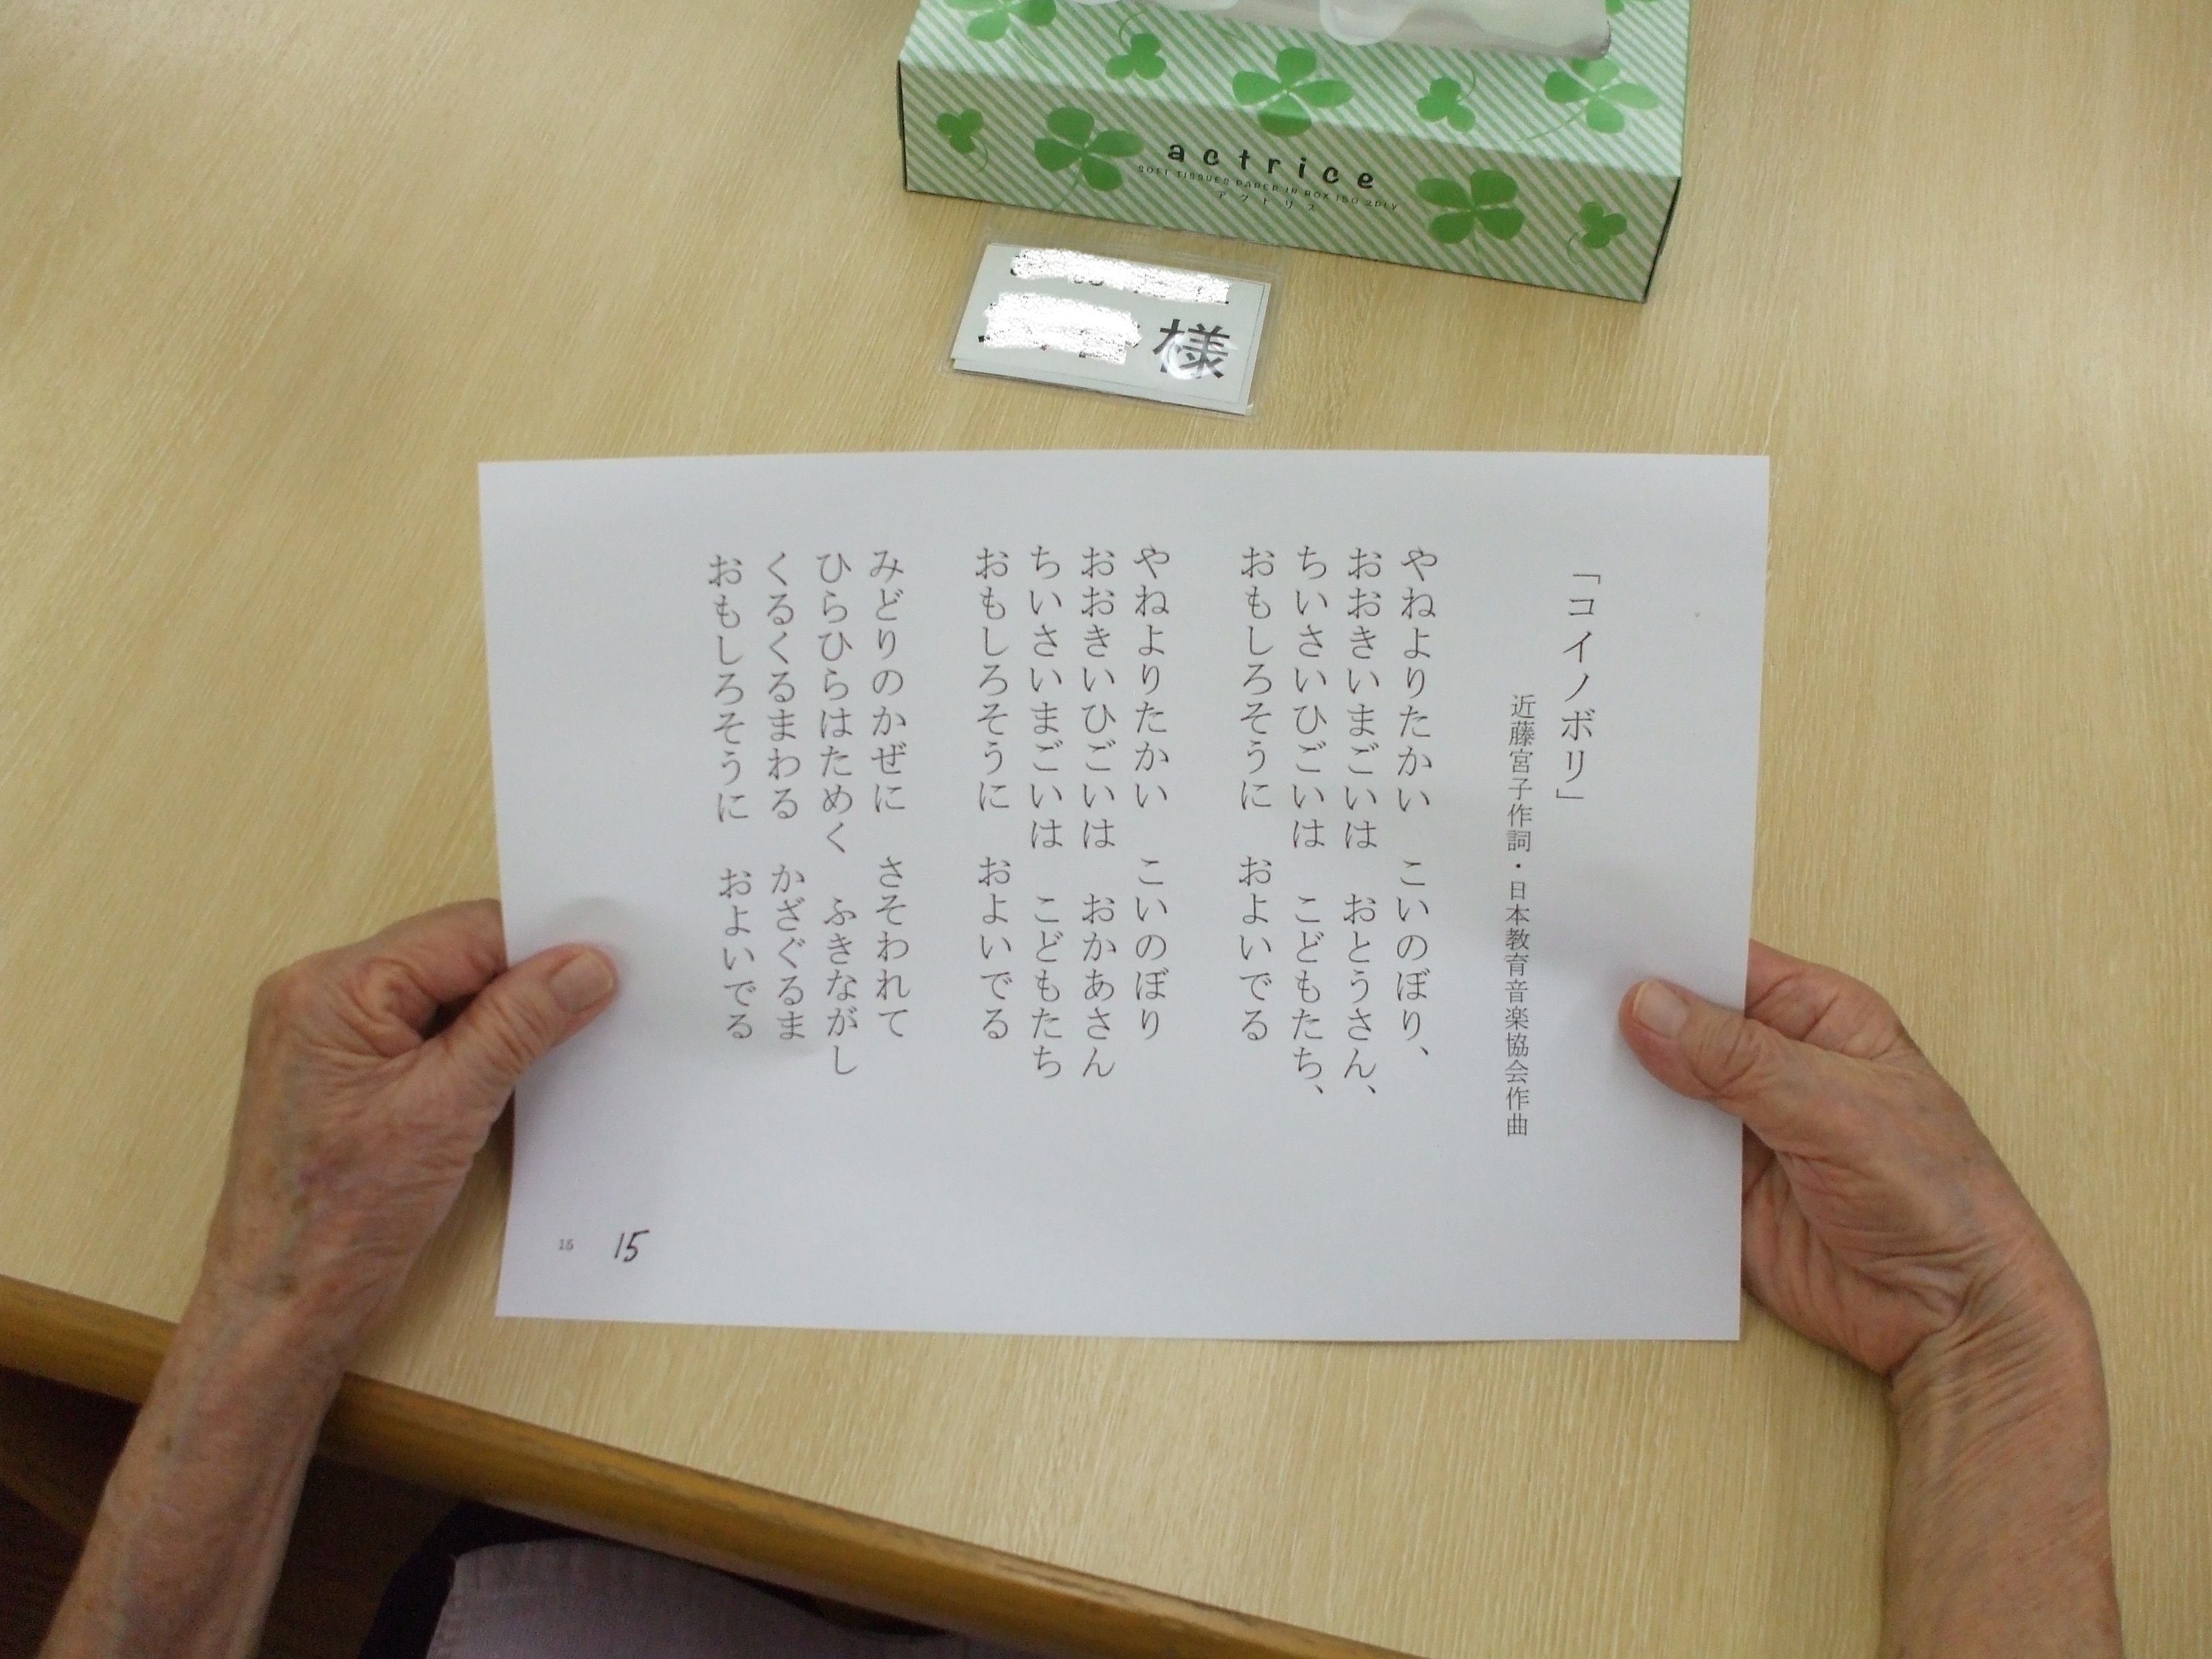 actrice
SOFT TISSUES PAPER IN BOX 150 2PLY
アクトリス
様
「コイノボリ」
近藤宮子作詞・日本教育音楽協会作曲
やねよりたかい　こいのぼり、
おおきいまごいは　おとうさん、
ちいさいひごいは　こどもたち、
おもしろそうに　およいでる
やねよりたかい　こいのぼり
おおきいひごいは　おかあさん
ちいさいまごいは　こどもたち
おもしろそうに　およいでる
みどりのかぜに　さそわれて
ひらひらはためく　ふきながし
くるくるまわる　かざぐるま
おもしろそうに　およいでる
15
15